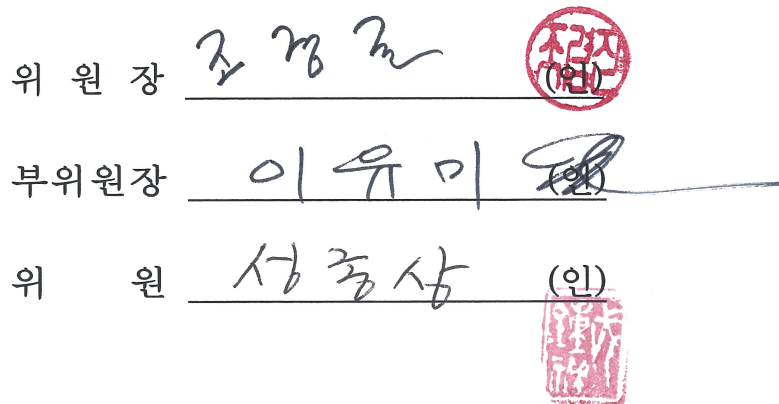 위 원 장 조경 (인)
부위원장 이유미 (인)
위 원 성중상 (인)